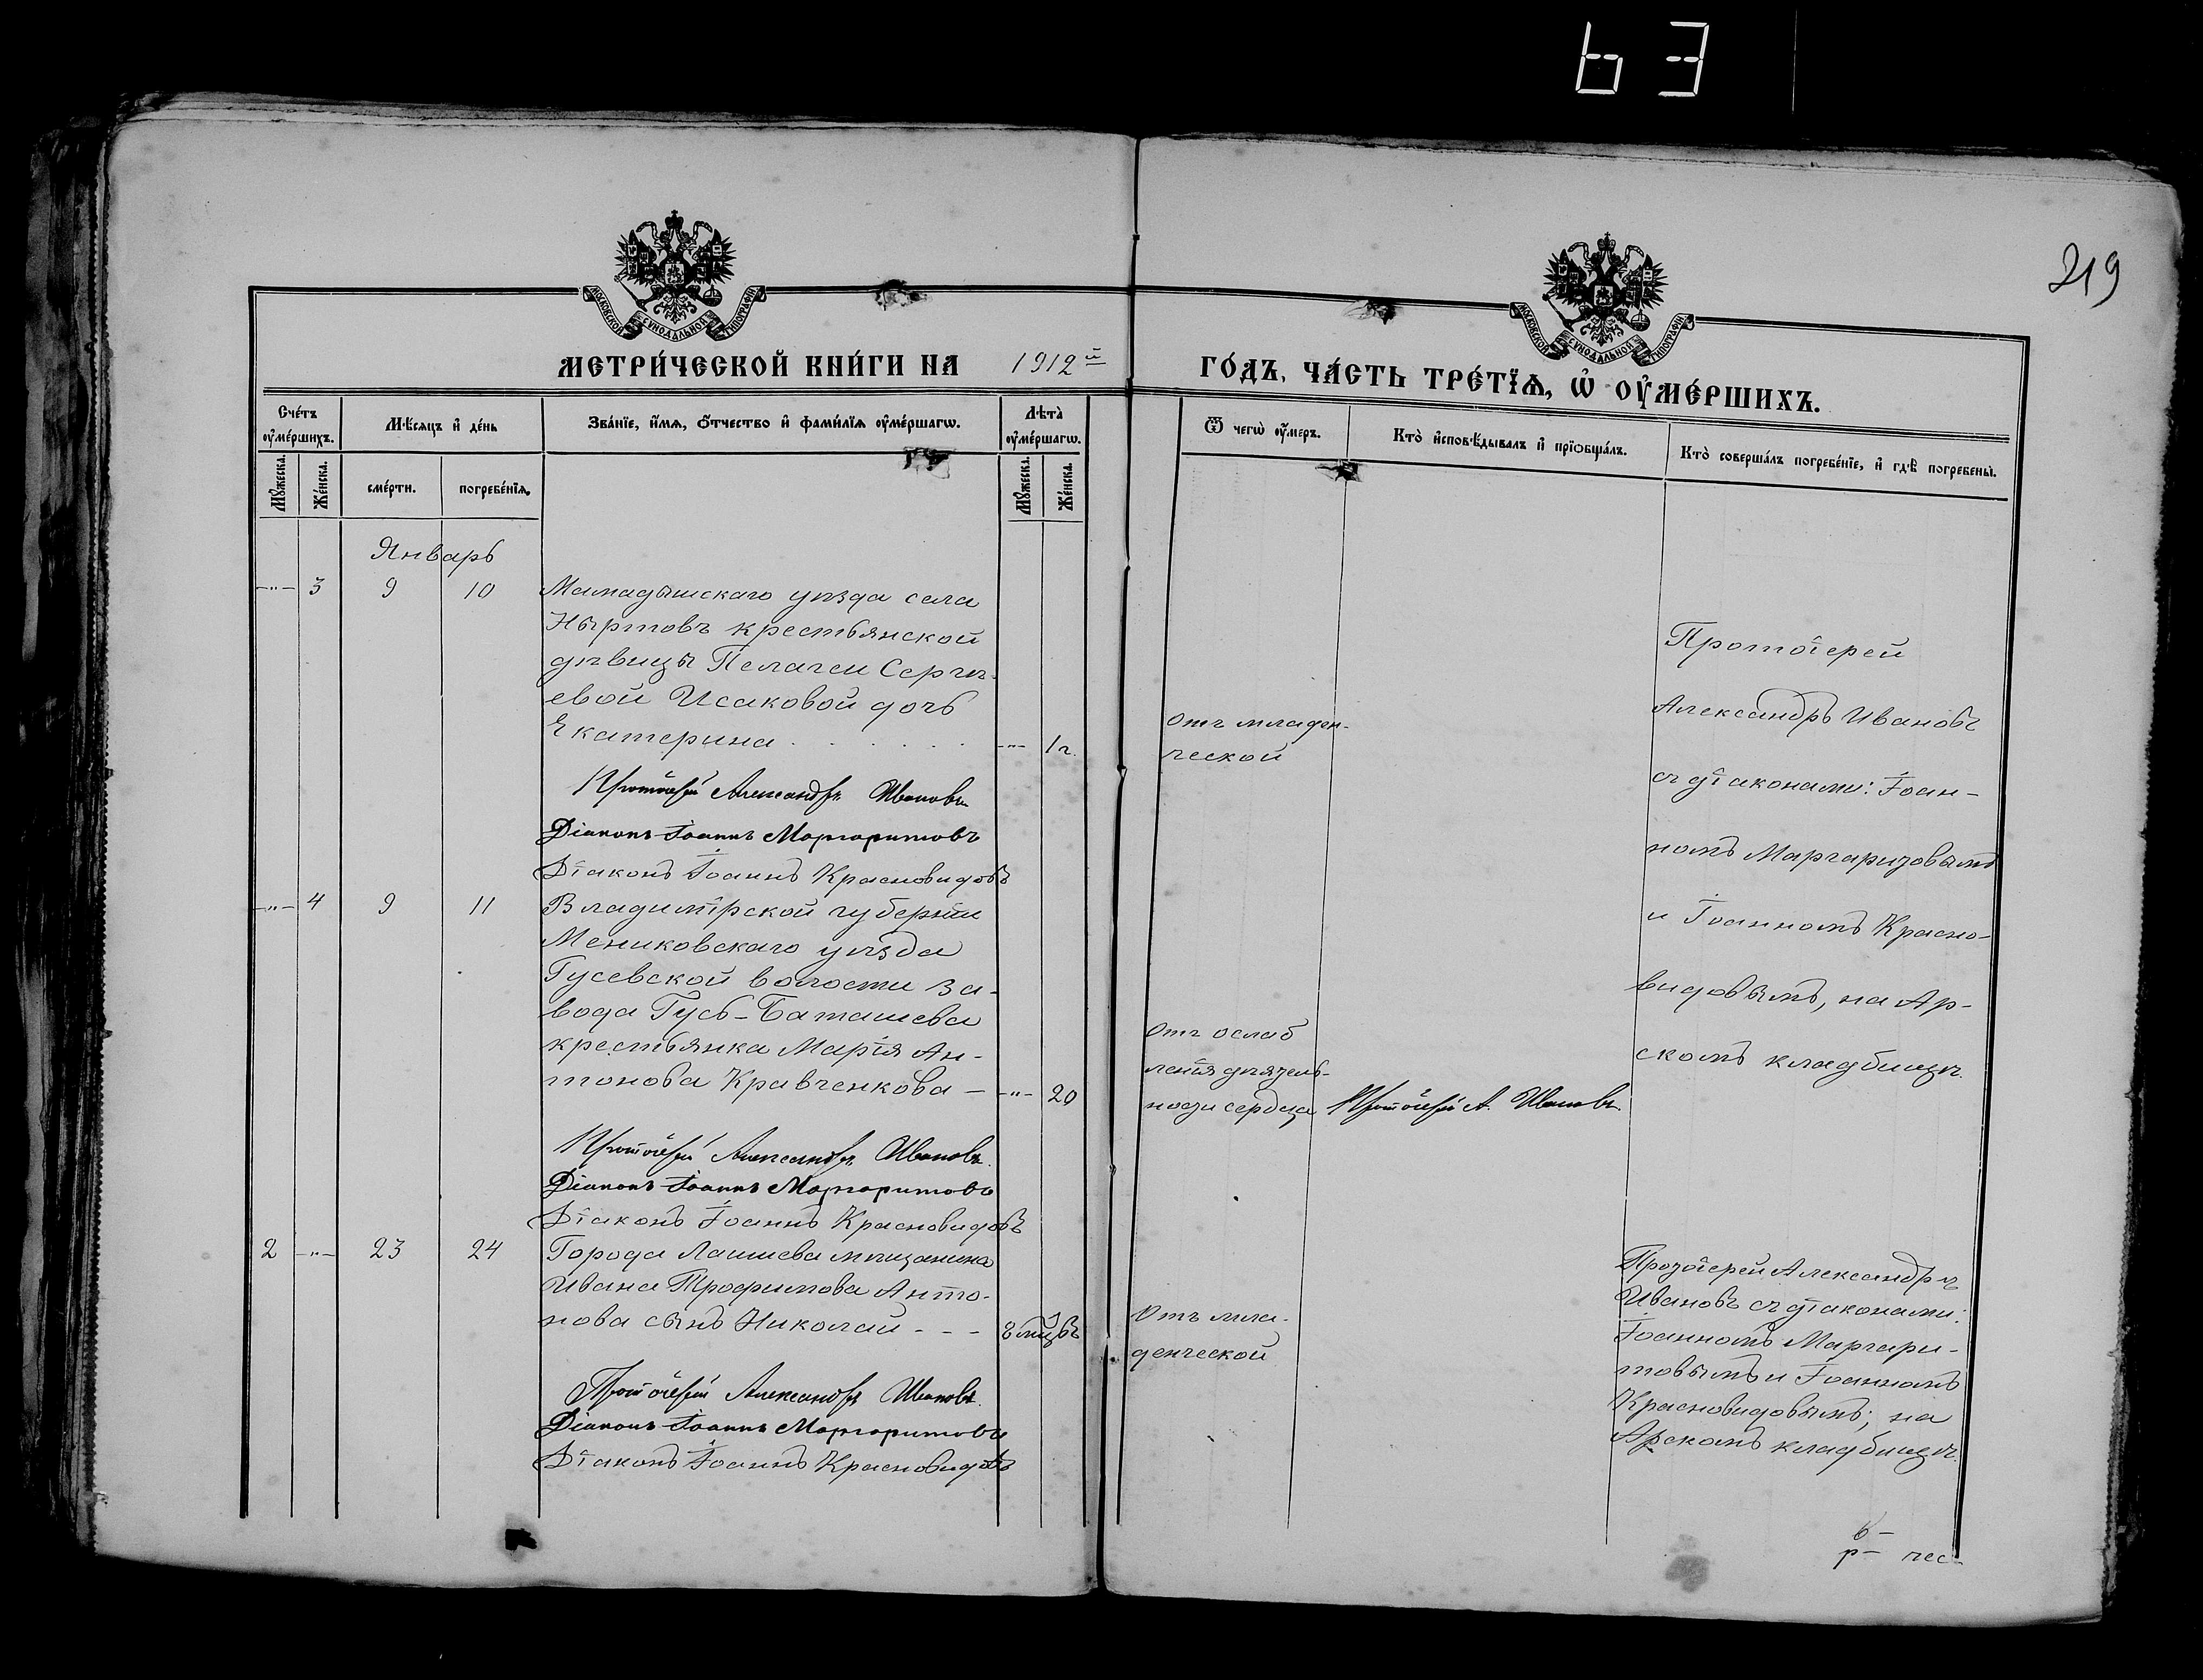 63
219
МОСКОВСКОЙ СѴНОДАЛЬНОЙ ТИПОГРАФІИ
МОСКОВСКОЙ СѴНОДАЛЬНОЙ ТИПОГРАФІИ
МЕТРИ́ЧЕСКОЙ КНИ́ГИ НА 1912й ГО́ДЪ, ЧА́СТЬ ТРЕ́ТЇѦ, Ѡ҆ ОУ҆МЕ́РШИХЪ.
Сче́тъ оу҆ме́ршихъ.
Мѣ́сѧцъ и҆ де́нь
Зва́нїе, и҆́мѧ, ѻ҆́тчество и҆ фами́лїѧ оу҆ме́ршагѡ.
Лѣ́та оу҆ме́ршагѡ.
Ѿ чегѡ̀ оу҆́меръ.
Кто̀ и҆сповѣ́дывалъ и҆ прїѡбща́лъ.
Кто̀ соверша́лъ погребе́нїе, и҆ гдѣ̀ погребены̀.
Мꙋ́жеска.
Же́нска.
сме́рти.
погребе́нїѧ.
Мꙋ́жеска.
Же́нска.
Январь
-"- 3 9 10 Мамадышскаго уѣзда села
Ныртовъ крестьянской
дѣвицы Пелагеи Сергѣ-
евой Исаковой дочь
Екатерина . . . . . . -"- 1 г.
Отъ младен-
ческой
Протоіерей
Александръ Ивановъ
съ діаконами: Іоан-
номъ Маргаритовымъ
и Іоанномъ Красно-
видовымъ, на Ар-
скомъ кладбищѣ.
Протоіерей Александръ Ивановъ
Діаконъ Іоаннъ Маргаритовъ
Діаконъ Іоаннъ Красновидовъ
-"- 4 9 11 Владимірской губерніи
Мениковскаго уѣзда
Гусевской волости за-
вода Гусь-Баташева
крестьянка Марія Ан-
тонова Кравченкова — -"- 20
Отъ ослаб
ленія дѣятель-
ности сердца
Протоіерей А. Ивановъ.
Протоіерей Александръ Ивановъ.
Діаконъ Іоаннъ Маргаритовъ
Діаконъ Іоаннъ Красновидовъ
2 -"- 23 24 Города Лаишева мѣщанина
Ивана Трофимова Анто-
нова сынъ Николай - - - 8 мцвъ
Отъ мла-
денческой
Протоіерей Александръ
Ивановъ съ діаконами:
Іоанномъ Маргари-
товымъ и Іоанномъ
Красновидовымъ; на
Арскомъ кладбищѣ.
Протоіерей Александръ Ивановъ.
Діаконъ Іоаннъ Маргаритовъ
Діаконъ Іоаннъ Красновидовъ